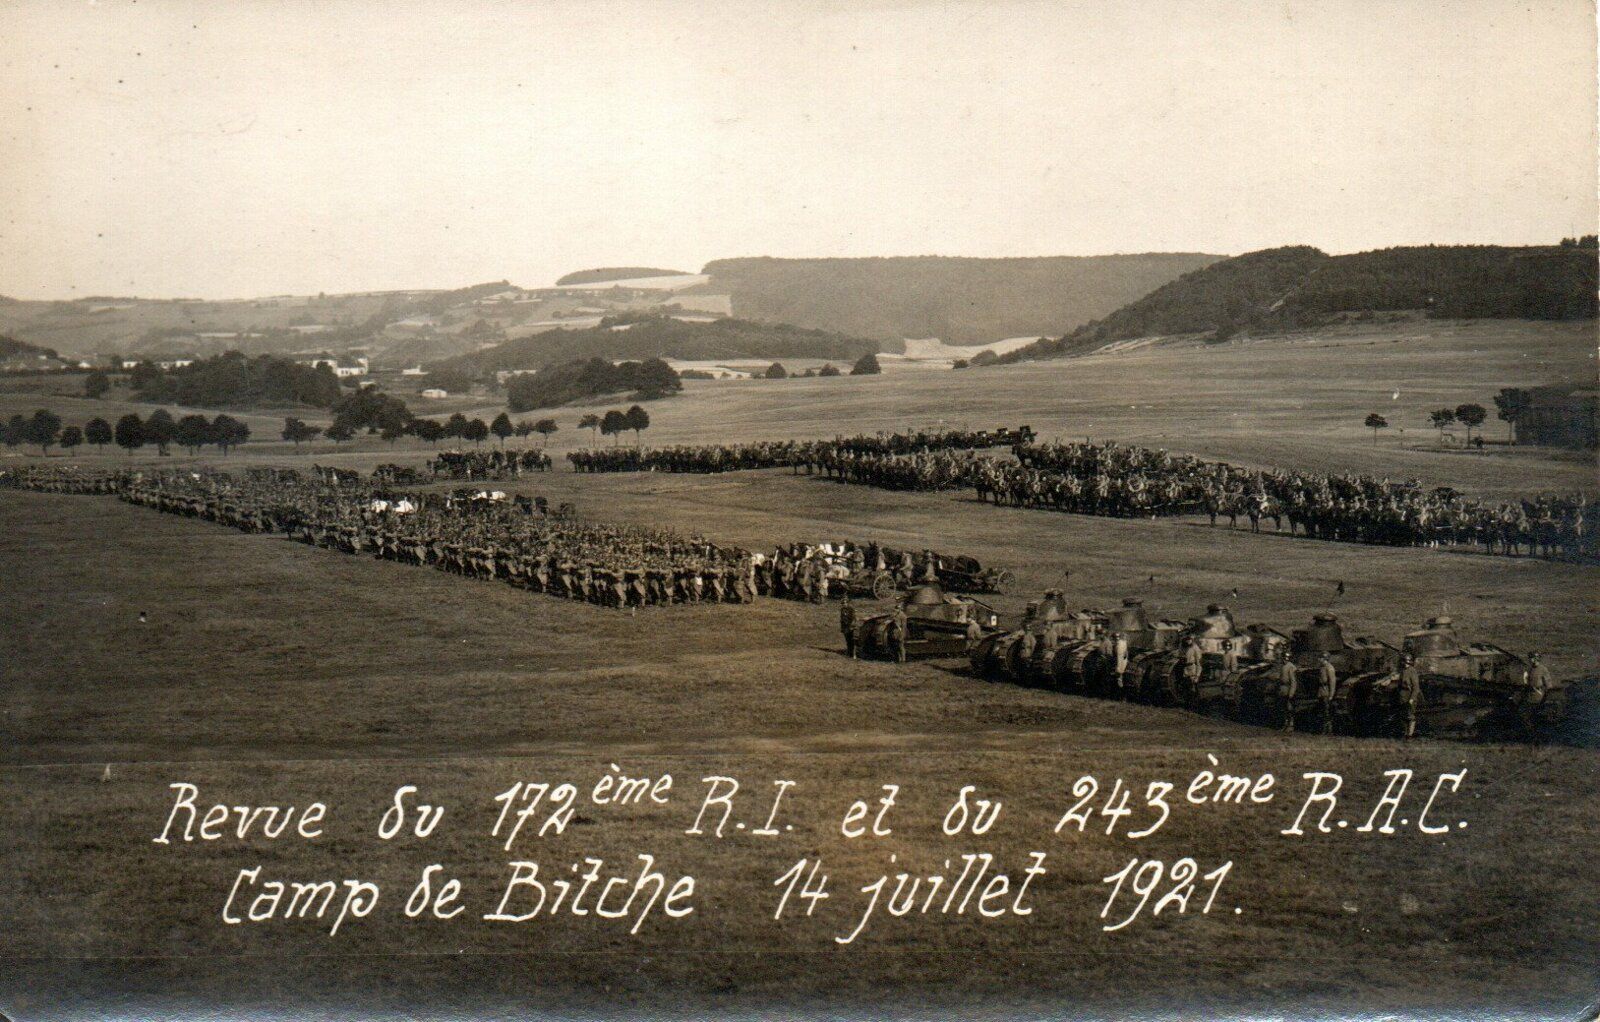 Revue du 172ème R.I. et du 243ème R.A.C.
Camp de Bitche 14 juillet 1921.